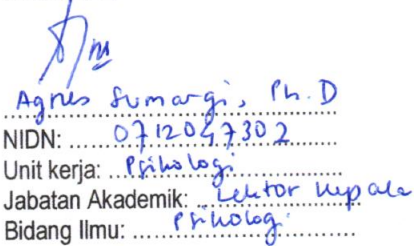 Agnes Sumargi, Ph.D
NIDN: 0712047302
Unit kerja: Psikologi
Jabatan Akademik: Lektor Kepala
Bidang Ilmu: Psikologi